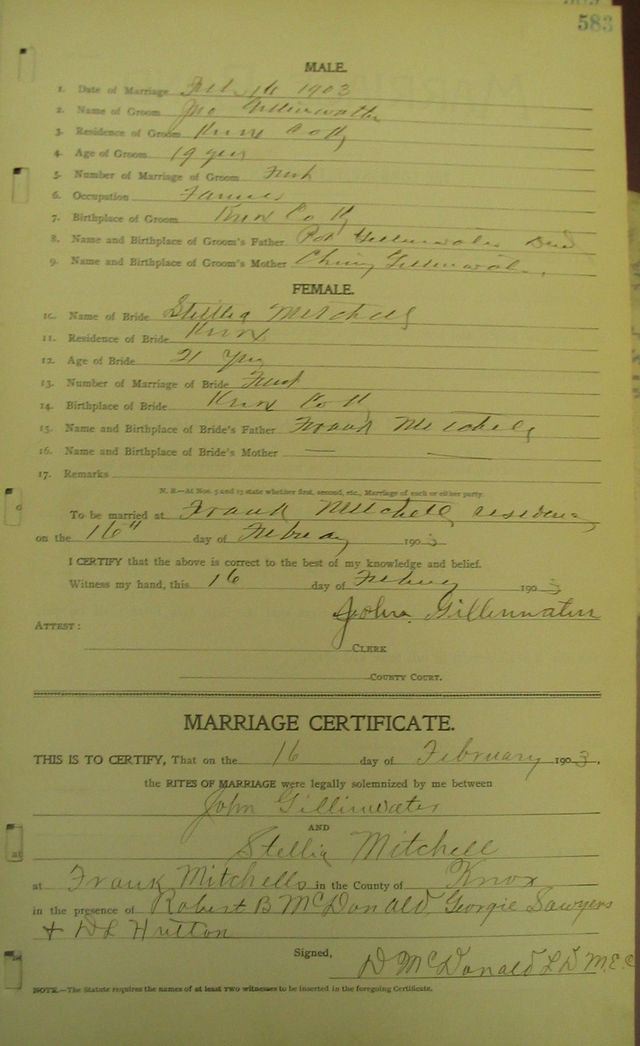 583
MALE.
1. Date of Marriage Feb 16 1903
2. Name of Groom Jno Gillinwater
3. Residence of Groom Knox Co Ky
4. Age of Groom 19 yers
5. Number of Marriage of Groom First
6. Occupation Farmer
7. Birthplace of Groom Knox Co Ky
8. Name and Birthplace of Groom's Father Gillinwater Dead
9. Name and Birthplace of Groom's Mother Gillinwater
FEMALE.
10. Name of Bride Stellia Mitchell
11. Residence of Bride Knox
12. Age of Bride 21 Yrs
13. Number of Marriage of Bride First
14. Birthplace of Bride Knox Co Ky
15. Name and Birthplace of Bride's Father Frank Mitchell
16. Name and Birthplace of Bride's Mother —
17. Remarks
N. B.—At Nos. 5 and 13 state whether first, second, etc., Marriage of each or either party.
To be married at Frank Mitchells residence
on the 16" day of Februay 1903
I CERTIFY that the above is correct to the best of my knowledge and belief.
Witness my hand, this 16 day of 1903
John Gillinwater
ATTEST:
CLERK
COUNTY COURT.
MARRIAGE CERTIFICATE.
THIS IS TO CERTIFY, That on the 16 day of February 1903,
the RITES OF MARRIAGE were legally solemnized by me between
John Gillinwater
AND
Stellia Mitchell
at Frank Mitchells in the County of Knox
in the presence of Robert B McDonald, Georgie Sawyers
+ D L Hutton
Signed,
D McDonald L D M.E.C
NOTE.—The Statute requires the names of at least TWO witnesses to be inserted in the foregoing Certificate.